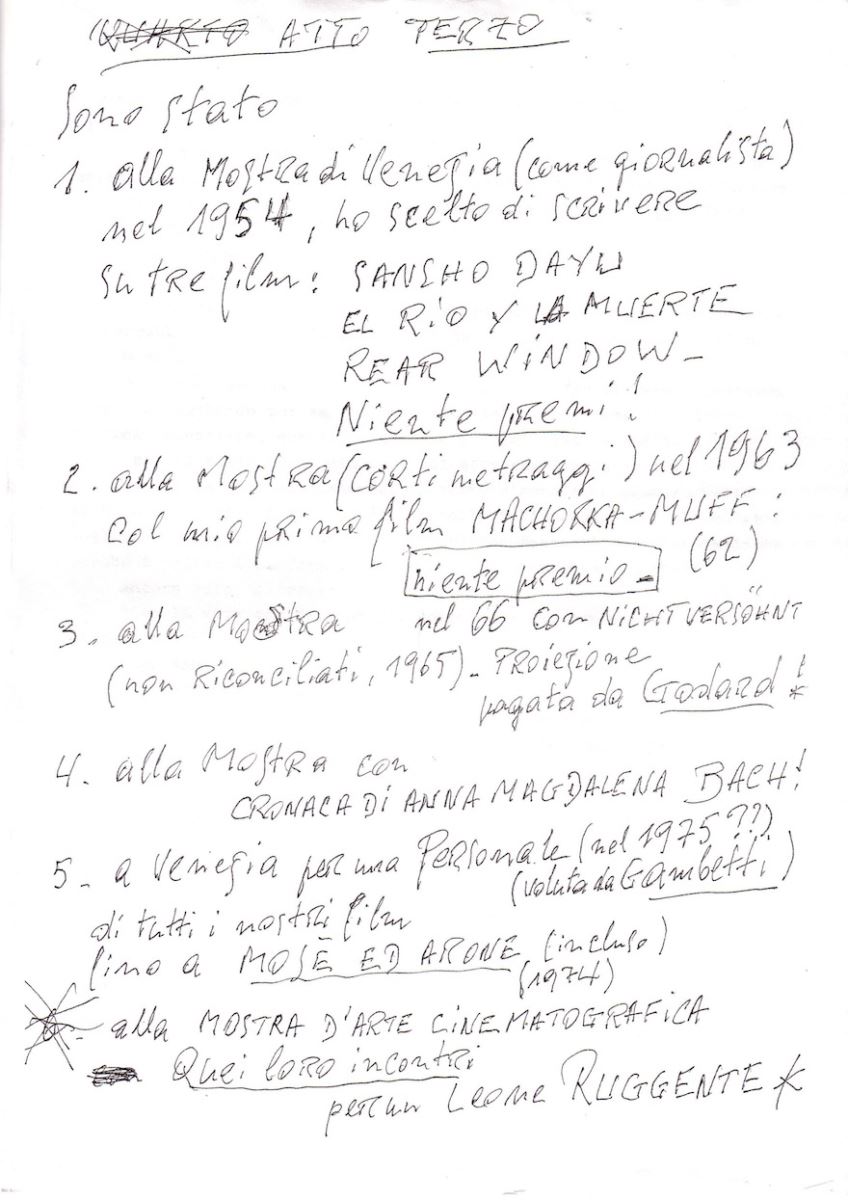 QUARTO ATTO TERZO
Sono stato
1. alla Mostra di Venezia (come giornalista)
nel 1954, ho scelto di scrivere
su tre film: SANSHO DAYU
EL RÍO Y LA MUERTE
REAR WINDOW –
Niente premi!
2. alla Mostra (cortimetraggi) nel 1963
col mio primo film MACHORKA-MUFF:
(62)
niente premio –
3. alla Mostra nel 66 con NICHT VERSÖHNT
(non Riconciliati, 1965) – Proiezione
pagata da Godard! *
4. alla Mostra con
CRONACA DI ANNA MAGDALENA BACH!
5 – a Venezia per una Personale (nel 1975??)
(voluta da Gambetti)
di tutti i nostri film
fino a MOSÈ ED ARONE (incluso)
(1974)
alla MOSTRA D'ARTE CINEMATOGRAFICA
Quei loro incontri
per un Leone RUGGENTE *